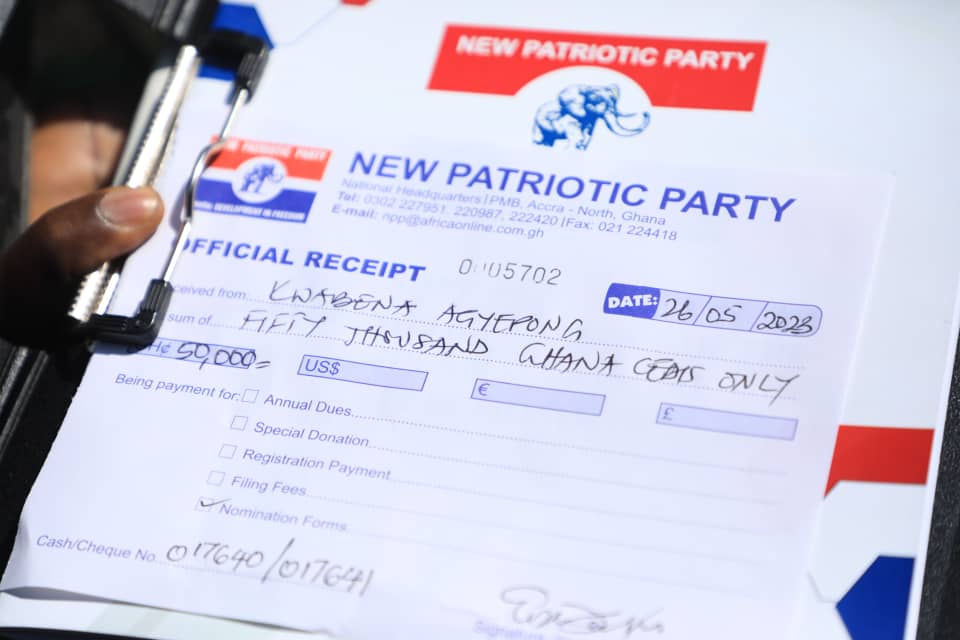 NEW PATRIOTIC PARTY
NEW PATRIOTIC PARTY
DEVELOPMENT IN FREEDOM
NEW PATRIOTIC PARTY
National Headquarters | PMB, Accra - North, Ghana
Tel: 0302 227951, 220987, 222420 | Fax: 021 224418
E-mail: npp@africaonline.com.gh
OFFICIAL RECEIPT 0005702
DATE: 26/05/2023
ceived from KWABENA AGYEPONG
sum of FIFTY THOUSAND GHANA CEDIS ONLY
GH¢ 50,000= US$ € £
Being payment for: Annual Dues
Special Donation
Registration Payment
Filing Fees
✓ Nomination Forms
Cash/Cheque No. 017640/017641
Signature